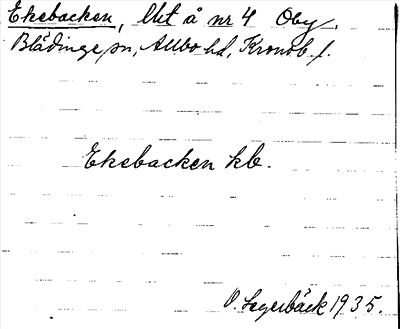 Ekebacken, lht å nr 4 Öby,
Blädinge sn, Allbo hd, Kronob. l.
Ekebacken kb.
O. Segerbäck 1935.